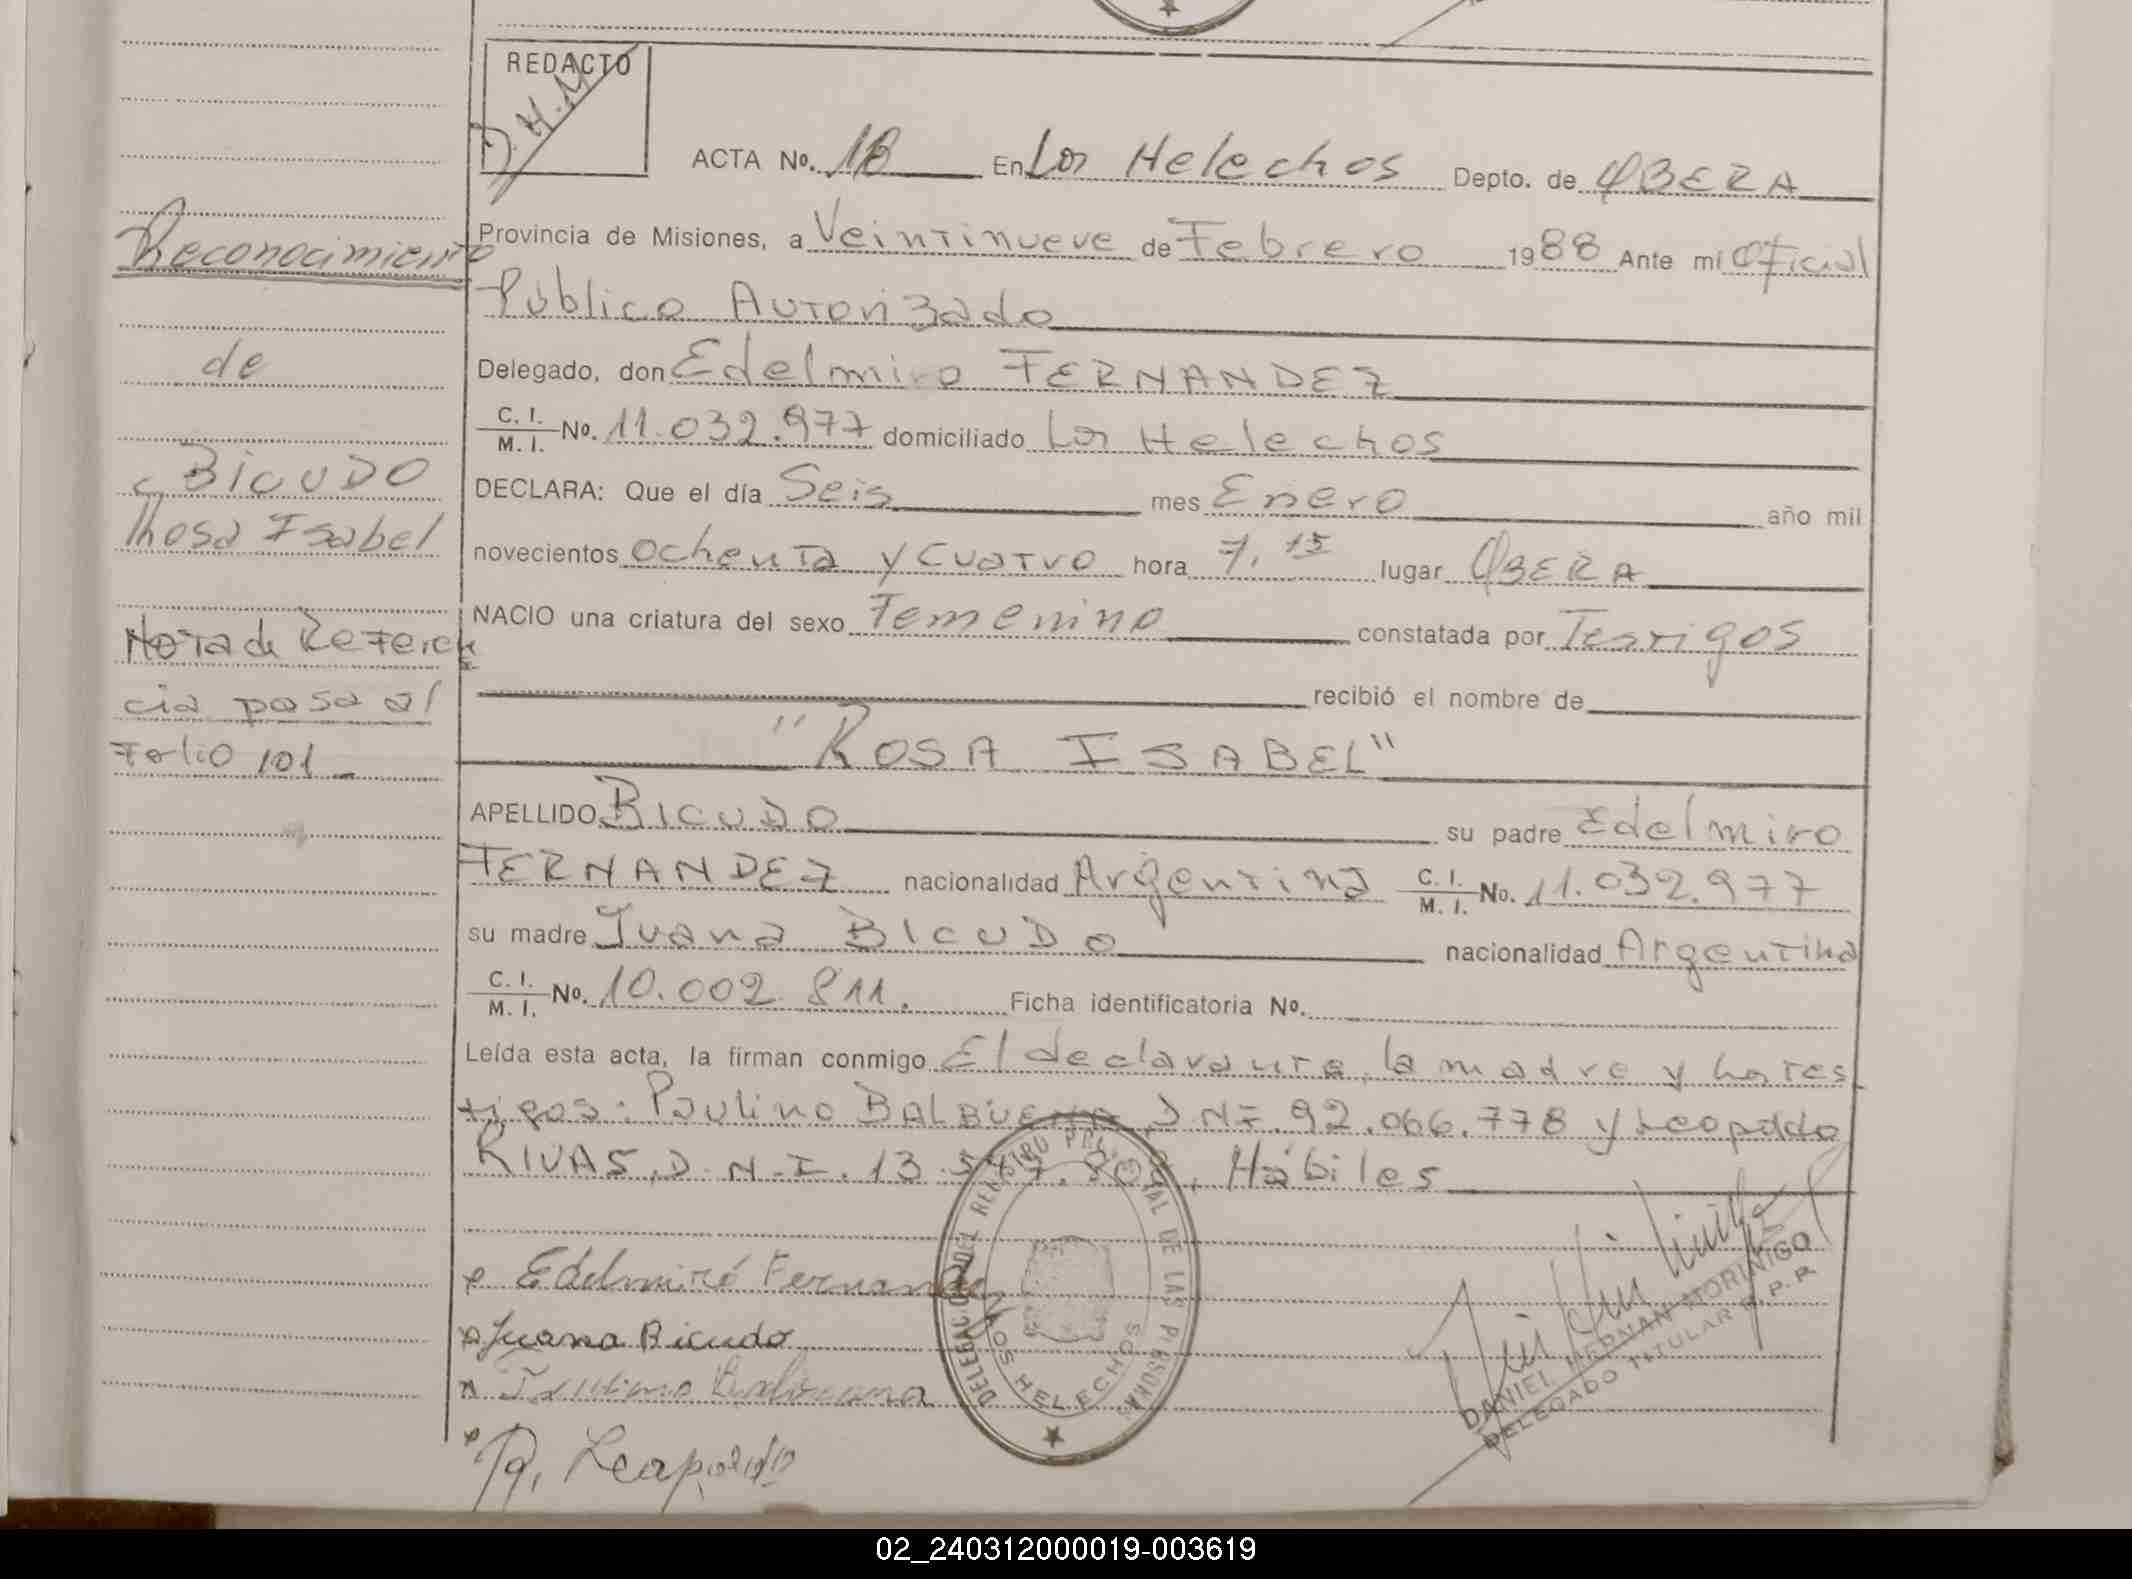 REDACTO
D.H.M
ACTA No. 18 En Los Helechos Depto. de OBERA
Provincia de Misiones, a Veintinueve de Febrero 1988 Ante mi Oficial
Público Autorizado
Delegado, don Edelmiro FERNANDEZ
C. I. / M. I. No. 11.032.977 domiciliado Los Helechos
DECLARA: Que el día Seis mes Enero año mil
novecientos ochenta y cuatro hora 7,15 lugar OBERA
NACIO una criatura del sexo Femenino constatada por Testigos
recibió el nombre de
"ROSA ISABEL"
APELLIDO BICUDO su padre Edelmiro
FERNANDEZ nacionalidad Argentina C. I. / M. I. No. 11.032.977
su madre Juana BICUDO nacionalidad Argentina
C. I. / M. I. No. 10.002.811. Ficha identificatoria No.
Leída esta acta, la firman conmigo El declarante, la madre y los tes
tigos: Paulino BALBUENA, DNI. 92.066.778 y Leopoldo
RIVAS, D.N.I. 13. Hábiles
Reconocimiento
de
BICUDO
Rosa Isabel
Nota de Referen
cia pasa al
Folio 101
Edelmiro Fernandez
Juana Bicudo
Paulino Balbuena
R, Leopoldo
DELEGACION DEL REGISTRO PROVINCIAL DE LAS PERSONAS
LOS HELECHOS
DANIEL HERNAN MORINIGO
DELEGADO TITULAR R.P.P.
02_240312000019-003619